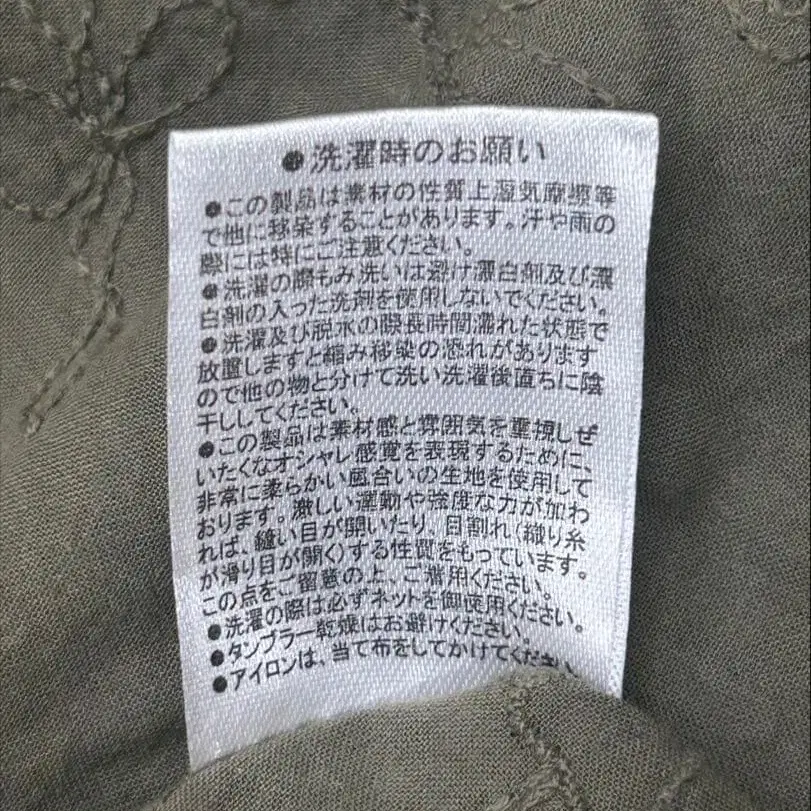 ●洗濯時のお願い
●この製品は素材の性質上湿気摩擦等
で他に移染することがあります。汗や雨の
際には特にご注意ください。
●洗濯の際もみ洗いは避け漂白剤及び漂
白剤の入った洗剤を使用しないでください。
●洗濯及び脱水の際長時間濡れた状態で
放置しますと縮み移染の恐れがあります
ので他の物と分けて洗い洗濯後直ちに陰
干ししてください。
●この製品は素材感と雰囲気を重視しぜ
いたくなオシャレ感覚を表現するために、
非常に柔らかい風合いの生地を使用して
おります。激しい運動や強度な力が加わ
れば、縫い目が開いたり、目割れ(織り糸
が滑り目が開く)する性質をもっています。
この点をご留意の上、ご着用ください。
●洗濯の際は必ずネットを御使用ください。
●タンブラー乾燥はお避けください。
●アイロンは、当て布をしてかけてください